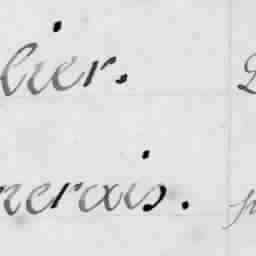 lier.
nerais.